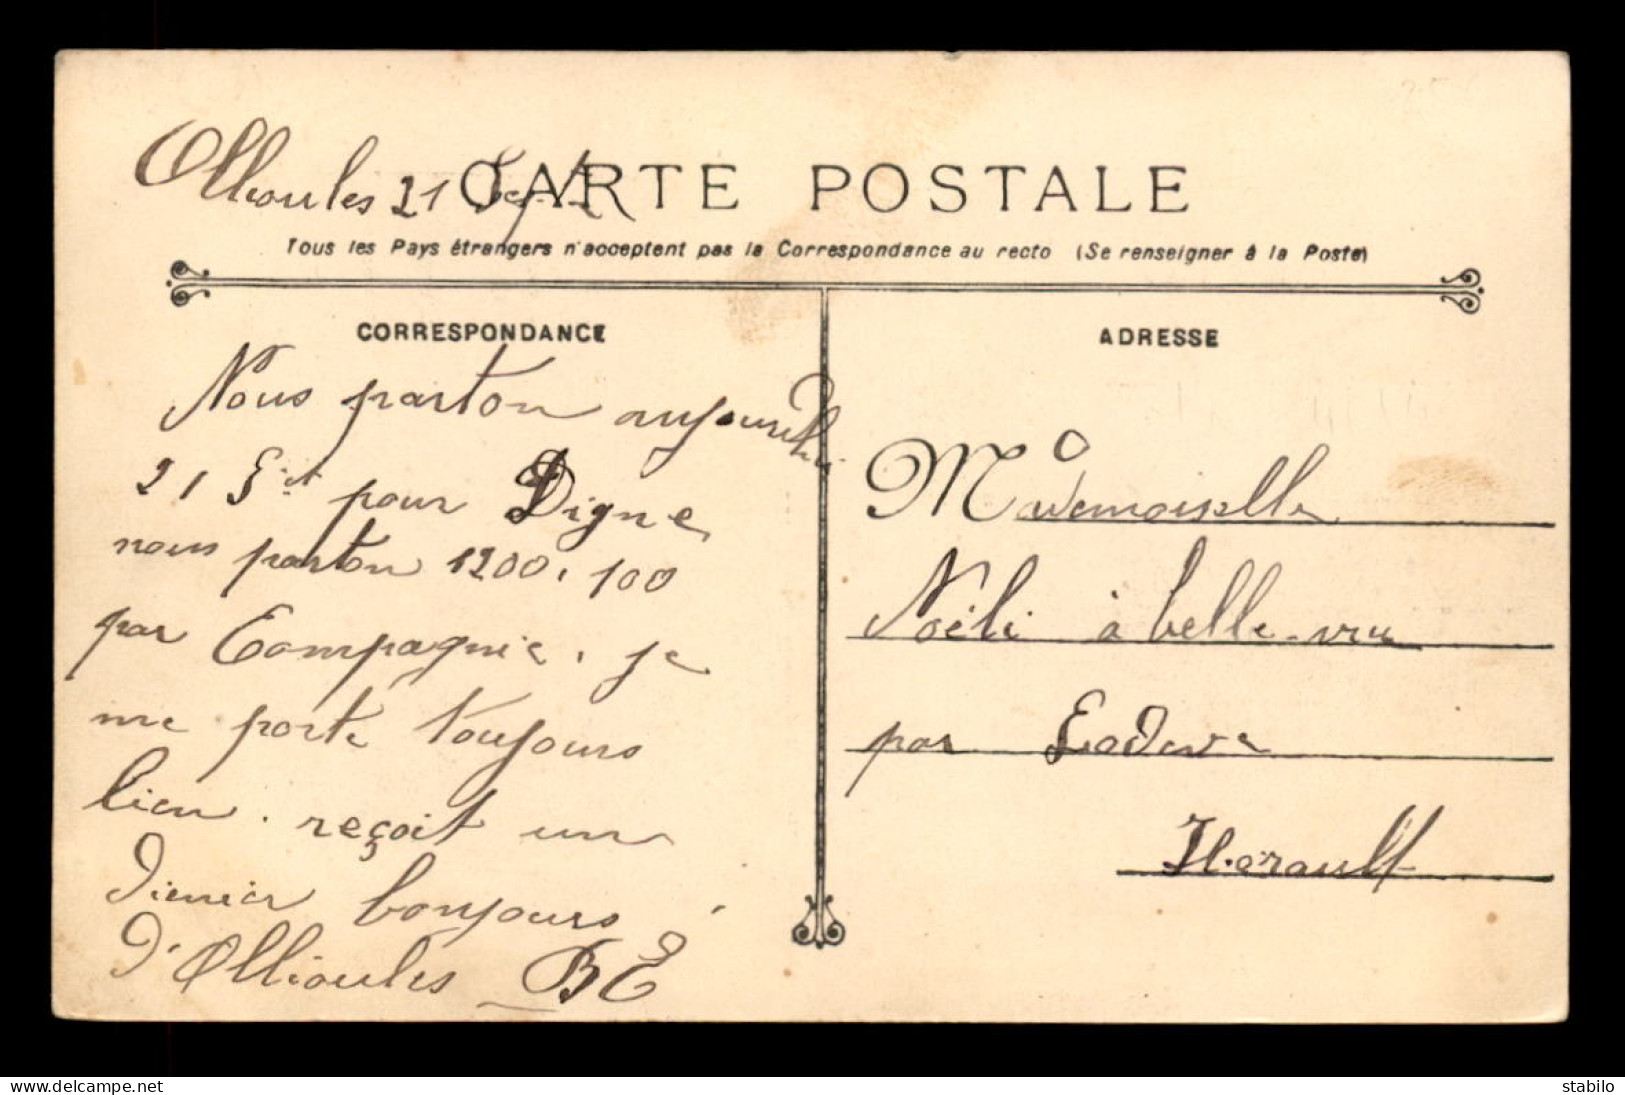 Ollioules 21 Sept
CARTE POSTALE
Tous les Pays étrangers n'acceptent pas la Correspondance au recto (Se renseigner à la Poste)
CORRESPONDANCE
Nous parton aujourdhui
21 Sict pour Digne
nous parton 1200, 100
par Compagnie, je
me porte toujours
bien. reçoit un
dernier bonjours
d'Ollioules BE
ADRESSE
Mademoiselle
Noéli à belle-vue
par Lodeve
Herault
delcampe.net
stabilo